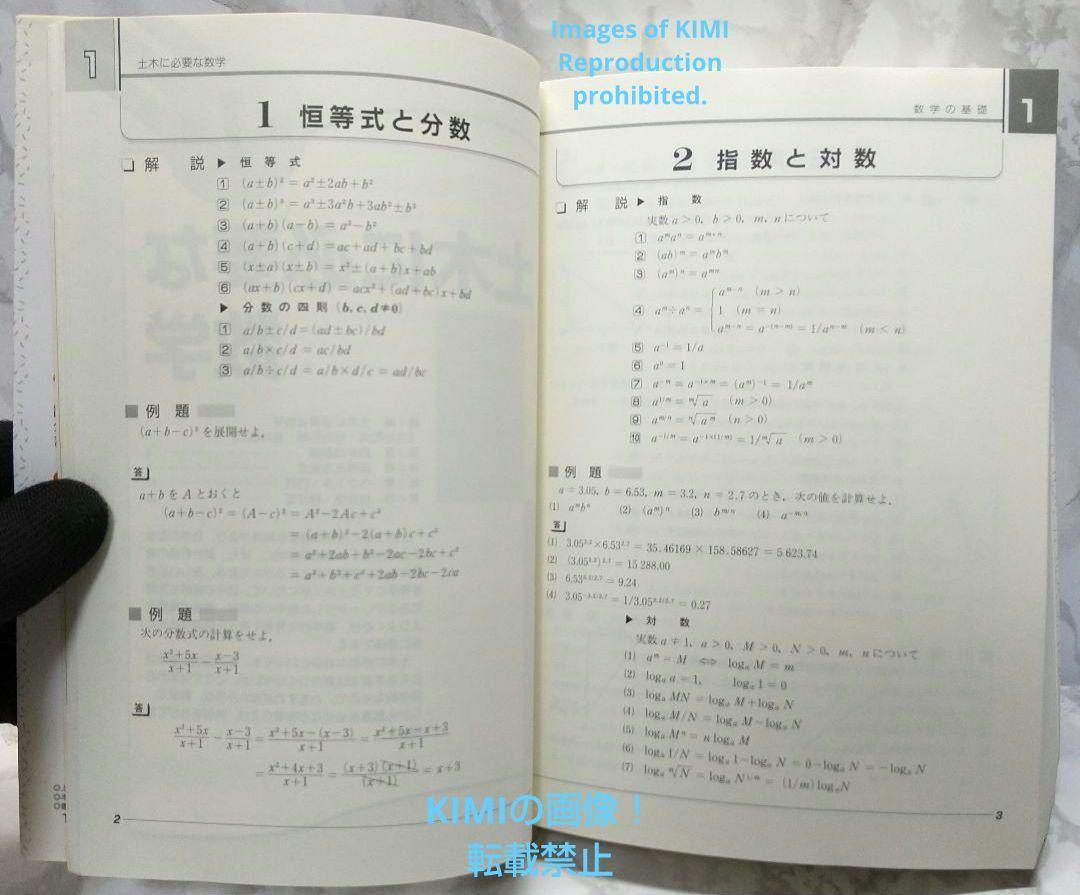 Images of KIMI
Reproduction
prohibited.
1
土木に必要な数学
1 恒等式と分数
❏ 解 説 ▶ 恒等式
1 (a±b)² = a²±2ab+b²
2 (a±b)³ = a³±3a²b+3ab²±b³
3 (a+b)(a−b) = a²−b²
4 (a+b)(c+d) = ac+ad+bc+bd
5 (x±a)(x±b) = x²±(a+b)x+ab
6 (ax+b)(cx+d) = acx²+(ad+bc)x+bd
▶ 分数の四則 (b, c, d≠0)
1 a/b±c/d=(ad±bc)/bd
2 a/b×c/d = ac/bd
3 a/b÷c/d = a/b×d/c = ad/bc
■ 例 題
(a+b−c)²を展開せよ.
答
a+bをAとおくと
(a+b−c)² = (A−c)² = A²−2Ac+c²
= (a+b)²−2(a+b)c+c²
= a²+2ab+b²−2ac−2bc+c²
= a²+b²+c²+2ab−2bc−2ca
■ 例 題
次の分数式の計算をせよ.
(x²+5x)/(x+1) − (x−3)/(x+1)
答
(x²+5x)/(x+1) − (x−3)/(x+1) = (x²+5x−(x−3))/(x+1) = (x²+5x−x+3)/(x+1)
= (x²+4x+3)/(x+1) = (x+3)(x+1)/(x+1) = x+3
2
数学の基礎
1
2 指数と対数
❏ 解 説 ▶ 指 数
実数 a>0, b>0, m, nについて
1 aᵐaⁿ = aᵐ⁺ⁿ
2 (ab)ᵐ = aᵐbᵐ
3 (aᵐ)ⁿ = aᵐⁿ
4 aᵐ÷aⁿ = { aᵐ⁻ⁿ (m>n)
1 (m=n)
aᵐ⁻ⁿ = a⁻⁽ⁿ⁻ᵐ⁾ = 1/aⁿ⁻ᵐ (m<n)
5 a⁻¹ = 1/a
6 a⁰ = 1
7 a⁻ᵐ = a⁻¹ˣᵐ = (aᵐ)⁻¹ = 1/aᵐ
8 a^{1/m} = ᵐ√a (m>0)
9 a^{m/n} = ⁿ√aᵐ (n>0)
10 a^{−1/m} = a^{−1×(1/m)} = 1/ᵐ√a (m>0)
■ 例 題
a = 3.05, b = 6.53, m = 3.2, n = 2.7のとき, 次の値を計算せよ.
(1) aᵐbⁿ (2) (aᵐ)ⁿ (3) b^{m/n} (4) a^{−m/n}
答
(1) 3.05^{3.2}×6.53^{2.7} = 35.46169 × 158.58627 = 5 623.74
(2) (3.05^{3.2})^{2.7} = 15 288.00
(3) 6.53^{3.2/2.7} = 9.24
(4) 3.05^{−3.2/2.7} = 1/3.05^{3.2/2.7} = 0.27
▶ 対 数
実数 a≠1, a>0, M>0, N>0, m, nについて
(1) aᵐ = M ⇔ logₐ M = m
(2) logₐ a = 1, logₐ 1 = 0
(3) logₐ MN = logₐ M+logₐ N
(4) logₐ M/N = logₐ M−logₐ N
(5) logₐ Mⁿ = n logₐ M
(6) logₐ 1/N = logₐ 1−logₐ N = 0−logₐ N = −logₐ N
(7) logₐ ᵐ√N = logₐ N^{1/m} = (1/m) logₐ N
3
KIMIの画像！
転載禁止